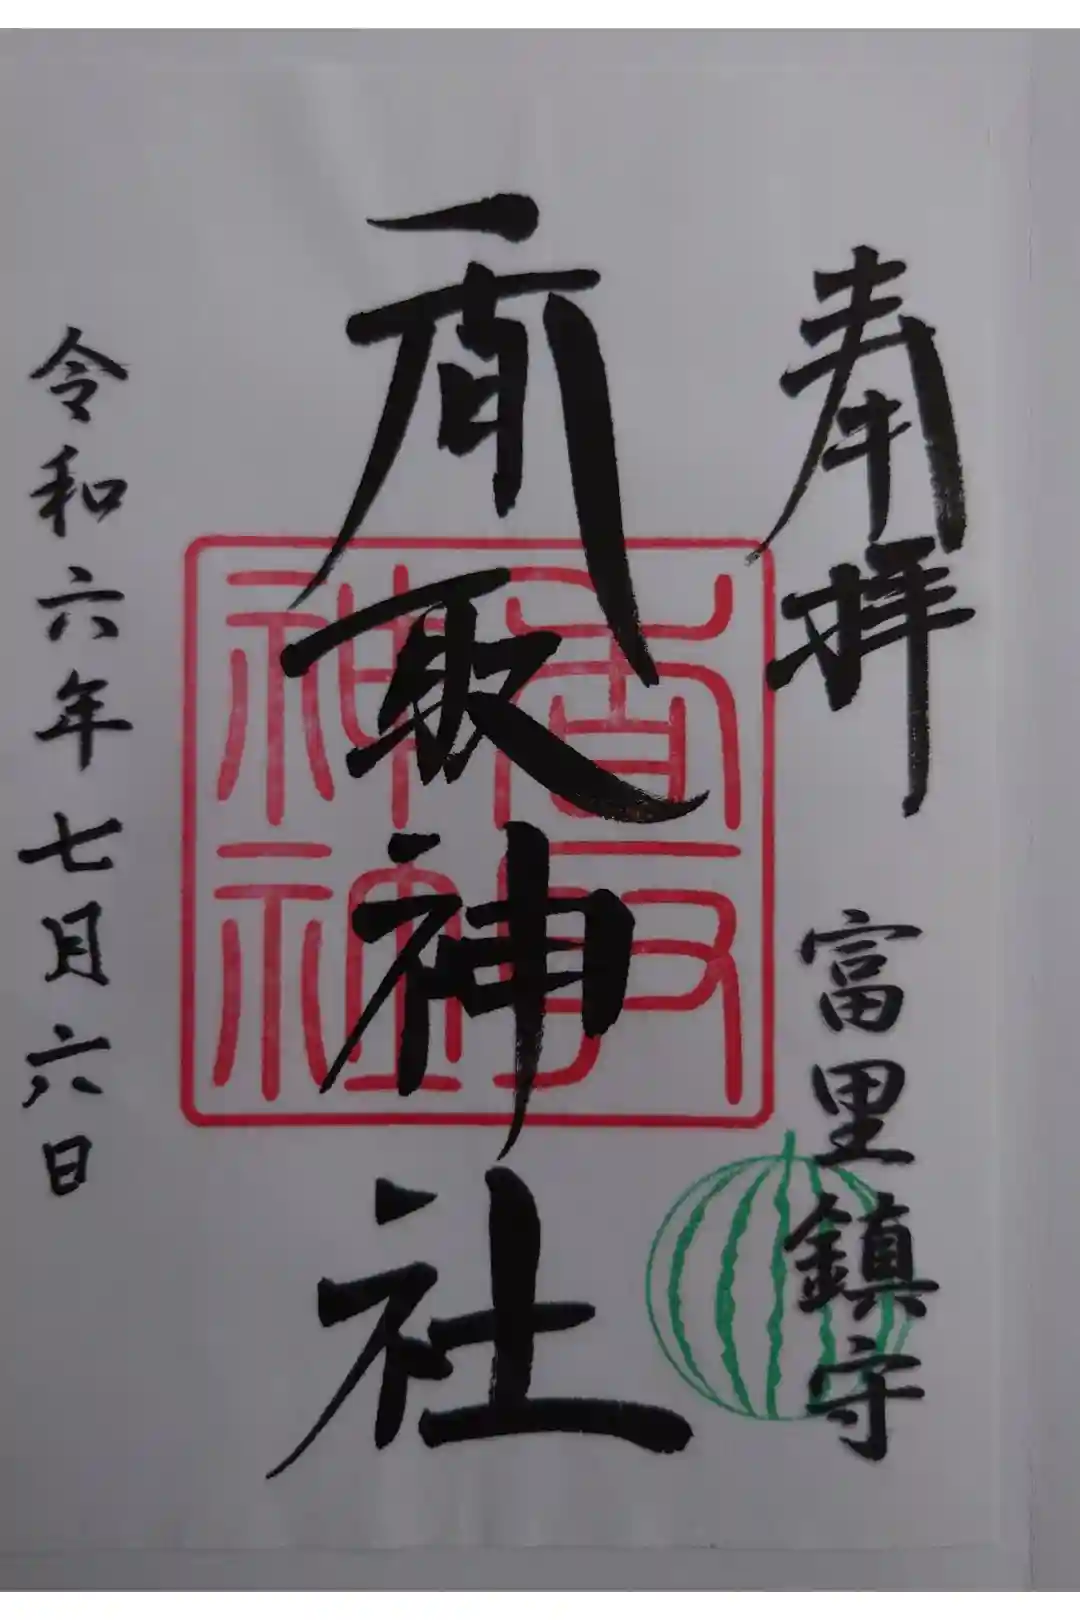 奉拝 富里鎮守
香取神社
香取神社
令和六年七月六日